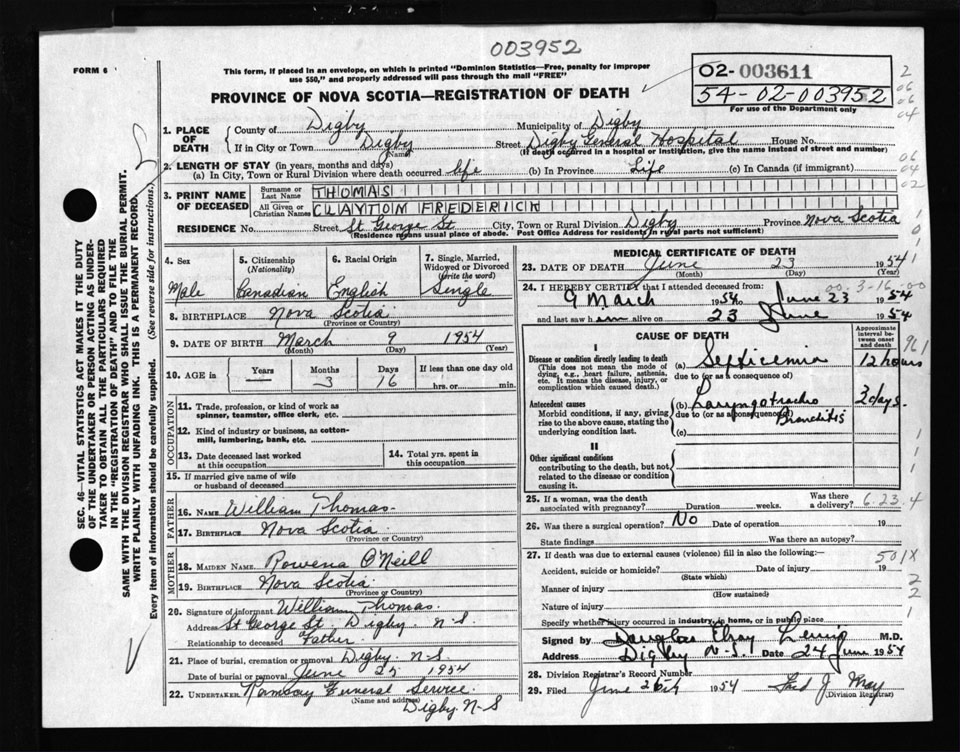 003952
FORM 6
This form, if placed in an envelope, on which is printed "Dominion Statistics—Free, penalty for improper
use $50," and properly addressed will pass through the mail "FREE"
PROVINCE OF NOVA SCOTIA—REGISTRATION OF DEATH
02-003611
54-02-003952
For use of the Department only
1. PLACE OF DEATH
County of Digby Municipality of Digby
If in City or Town Digby Street Digby General Hospital House No.
(Name) (If death occurred in a hospital or institution, give the name instead of street and number)
2. LENGTH OF STAY (in years, months and days)
(a) In City, Town or Rural Division where death occurred life (b) In Province Life (c) In Canada (if immigrant)
3. PRINT NAME OF DECEASED
Surname or Last Name THOMAS
All Given or Christian Names CLAYTOM FREDERICK
RESIDENCE No. Street St George St City, Town or Rural Division Digby Province Nova Scotia
(Residence means usual place of abode. Post Office Address for residents in rural parts not sufficient)
4. Sex Male
5. Citizenship (Nationality) Canadian
6. Racial Origin English
7. Single, Married, Widowed or Divorced (Write the word) Single
8. BIRTHPLACE Nova Scotia
(Province or Country)
9. DATE OF BIRTH March 9 1954
(Month) (Day) (Year)
10. AGE in Years — Months 3 Days 16 If less than one day old hrs. or min.
OCCUPATION
11. Trade, profession, or kind of work as spinner, teamster, office clerk, etc.
12. Kind of industry or business, as cotton-mill, lumbering, bank, etc.
13. Date deceased last worked at this occupation
14. Total yrs. spent in this occupation
15. If married give name of wife or husband of deceased
FATHER
16. NAME William Thomas
17. BIRTHPLACE Nova Scotia
(Province or Country)
MOTHER
18. MAIDEN NAME Rowena O'Neill
19. BIRTHPLACE Nova Scotia
(Province or Country)
20. Signature of informant William Thomas
Address St George St. Digby. N-S
Relationship to deceased Father
21. Place of burial, cremation or removal Digby. N-S.
Date of burial or removal June 25 1954
22. UNDERTAKER Ramsay Funeral Service
(Name and address) Digby. N-S
MEDICAL CERTIFICATE OF DEATH
23. DATE OF DEATH June 23 1954
(Month) (Day) (Year)
24. I HEREBY CERTIFY that I attended deceased from:
00.3-16.00
9 March 1954 to June 23 1954
and last saw him alive on 23 June 1954
CAUSE OF DEATH
Approximate interval between onset and death
I
Disease or condition directly leading to death
(This does not mean the mode of dying, e.g., heart failure, asthenia, etc. It means the disease, injury, or complication which caused death.)
(a) Septicemia 12 hours
due to (or as a consequence of)
Antecedent causes
Morbid conditions, if any, giving rise to the above cause, stating the underlying condition last.
(b) Laryngotracheo Bronchitis days
due to (or as a consequence of)
(c)
II
Other significant conditions
contributing to the death, but not related to the disease or condition causing it.
25. If a woman, was the death associated with pregnancy? Duration weeks. Was there a delivery?
6.23.4
26. Was there a surgical operation? No Date of operation 19
State findings Was there an autopsy?
27. If death was due to external causes (violence) fill in also the following:—
501X
Accident, suicide or homicide? Date of injury 19
(State which)
Manner of injury
(How sustained)
Nature of injury
Specify whether injury occurred in industry, in home, or in public place
Signed by Douglas M.D.
Address Digby N-S. Date 24 June 1954
28. Division Registrar's Record Number
29. Filed June 26th 1954 Fred J. Wray
(Division Registrar)
SEC. 46—VITAL STATISTICS ACT MAKES IT THE DUTY
OF THE UNDERTAKER OR PERSON ACTING AS UNDER-
TAKER TO OBTAIN ALL THE PARTICULARS REQUIRED
IN THE "REGISTRATION OF DEATH" AND TO FILE THE
SAME WITH THE DIVISION REGISTRAR WHO SHALL ISSUE THE BURIAL PERMIT.
WRITE PLAINLY WITH UNFADING INK. THIS IS A PERMANENT RECORD.
Every item of information should be carefully supplied. (See reverse side for instructions.)